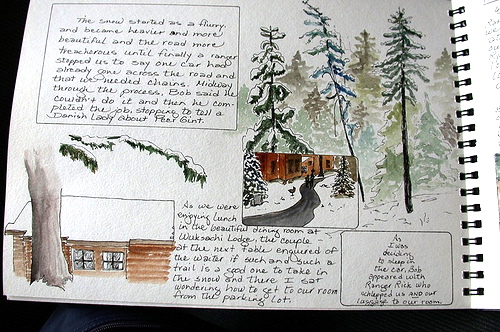 The snow started as a flurry
and became heavier and more
beautiful and the road more
treachorous until finally a ranger
stopped us to say one car had
already gone across the road and
that we needed chains. Midway
through the process, Bob said he
couldn't do it and then he com-
pleted the job, stopping to tell a
Danish Lady about Peer Gint.
As we were
enjoying lunch
in the beautiful dining room at
Wuksachi Lodge, the couple
at the next table enquired of
the waiter if such and such a
trail is a good one to take in
the snow and there I sat
wondering how to get to our room
from the parking lot.
As
I was
deciding
to sleep in
the car, Bob
appeared with
Ranger Rick who
schlepped us AND our
luggage to our room.